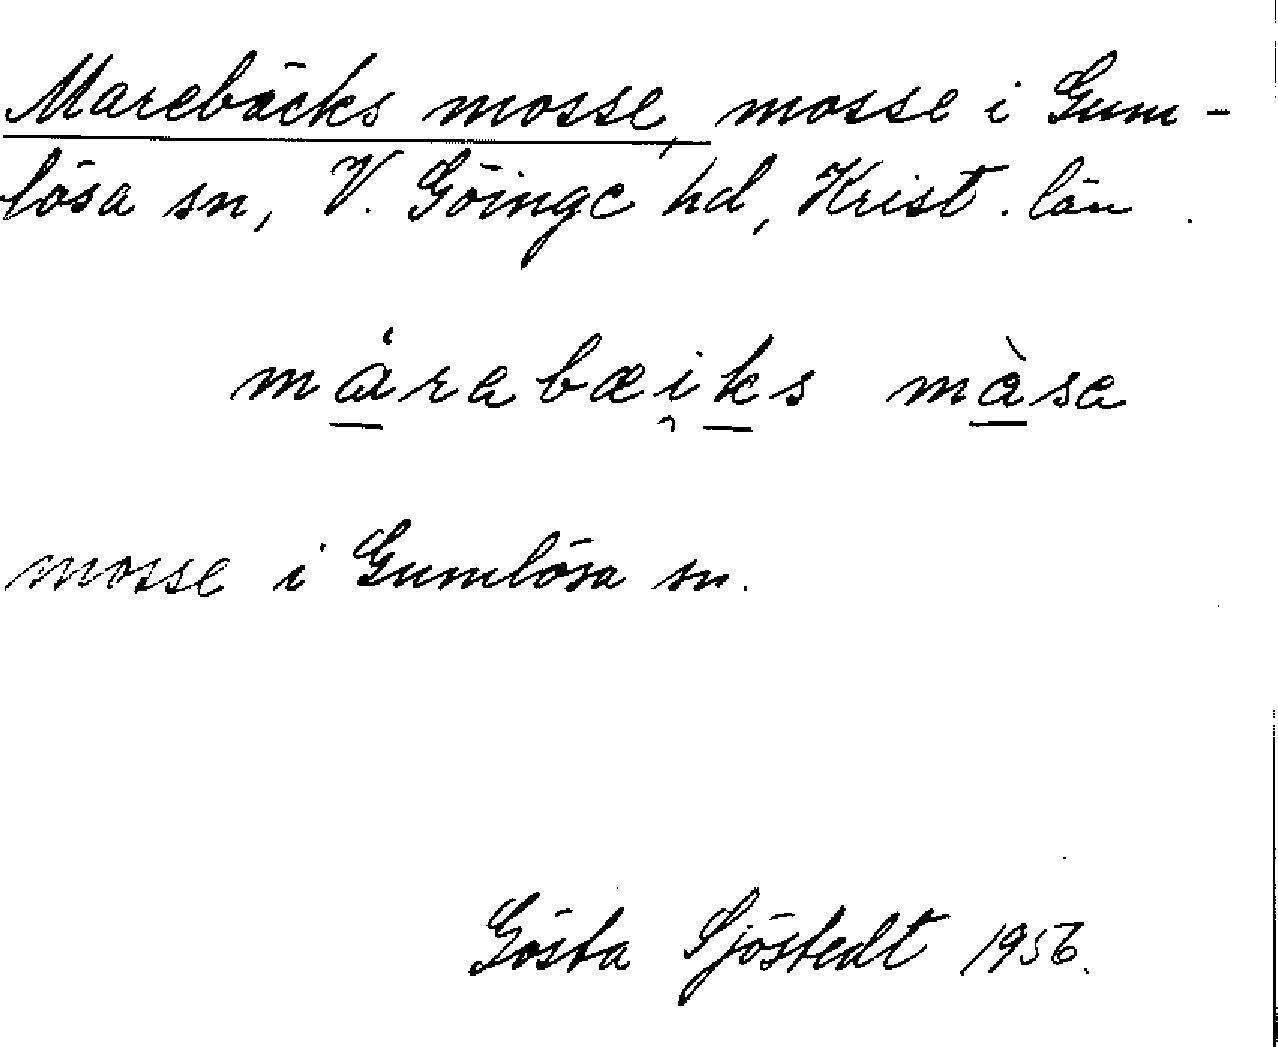 Marebäcks mosse, mosse i Gum-
lösa sn, V. Göinge hd, Krist. län.
márabæiks màsa
mosse i Gumlösa sn.
Gösta Sjöstedt 1956.